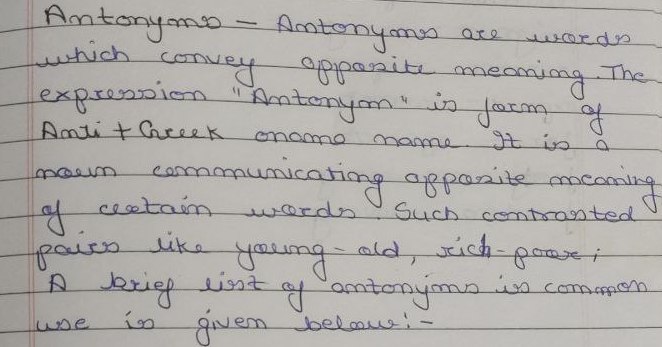 Antonyms - Antonyms are words
which convey opposite meaning. The
expression "Antonym" is form of
Anti + Greek onama name. It is a
noun communicating opposite meaning
of certain words. Such contrasted
pairs like young-old, rich-poor;
A brief list of antonyms in common
use is given below:-